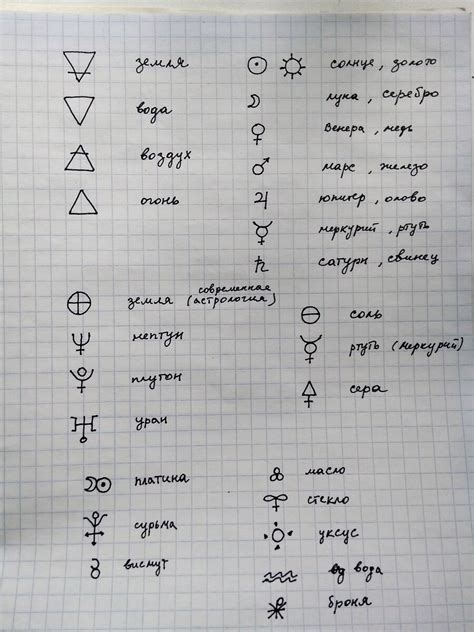 земля
вода
воздух
огонь
солнце, золото
луна, серебро
венера, медь
марс, железо
юпитер, олово
меркурий, ртуть
сатурн, свинец
земля современная (астрология)
нептун
плутон
уран
соль
ртуть (меркурий)
сера
платина
сурьма
висмут
масло
стекло
уксус
вода
броня